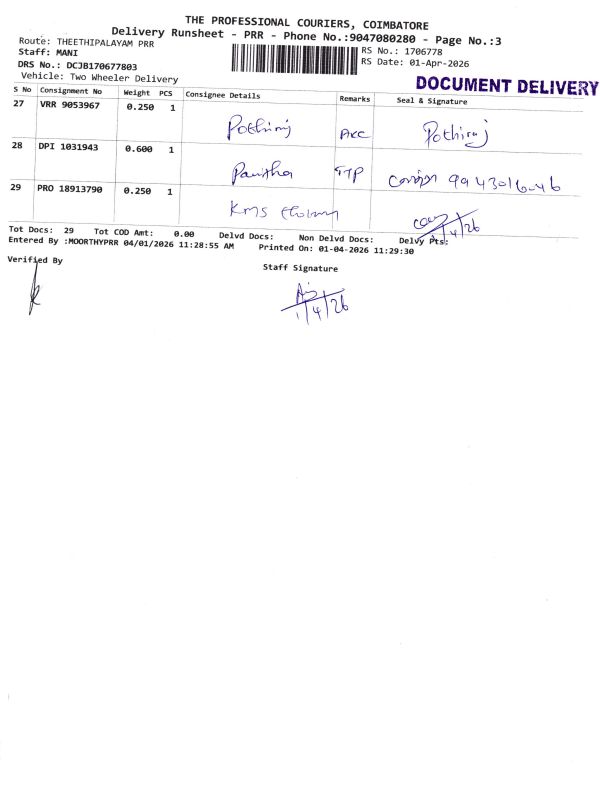 THE PROFESSIONAL COURIERS, COIMBATORE
Delivery Runsheet - PRR - Phone No.:9047080280 - Page No.:3
Route: THEETHIPALAYAM PRR
Staff: MANI
DRS No.: DCJB170677803
Vehicle: Two Wheeler Delivery
RS No.: 1706778
RS Date: 01-Apr-2026
DOCUMENT DELIVERY
S No Consignment No Weight PCS Consignee Details Remarks Seal & Signature
27 VRR 9053967 0.250 1 Pothiraj Pothiraj
28 DPI 1031943 0.600 1
29 PRO 18913790 0.250 1 Kms 1/4/26
Tot Docs: 29 Tot COD Amt: 0.00 Delvd Docs: Non Delvd Docs: Delvy Pts:
Entered By :MOORTHYPRR 04/01/2026 11:28:55 AM Printed On: 01-04-2026 11:29:30
Verified By
Staff Signature
1/4/26